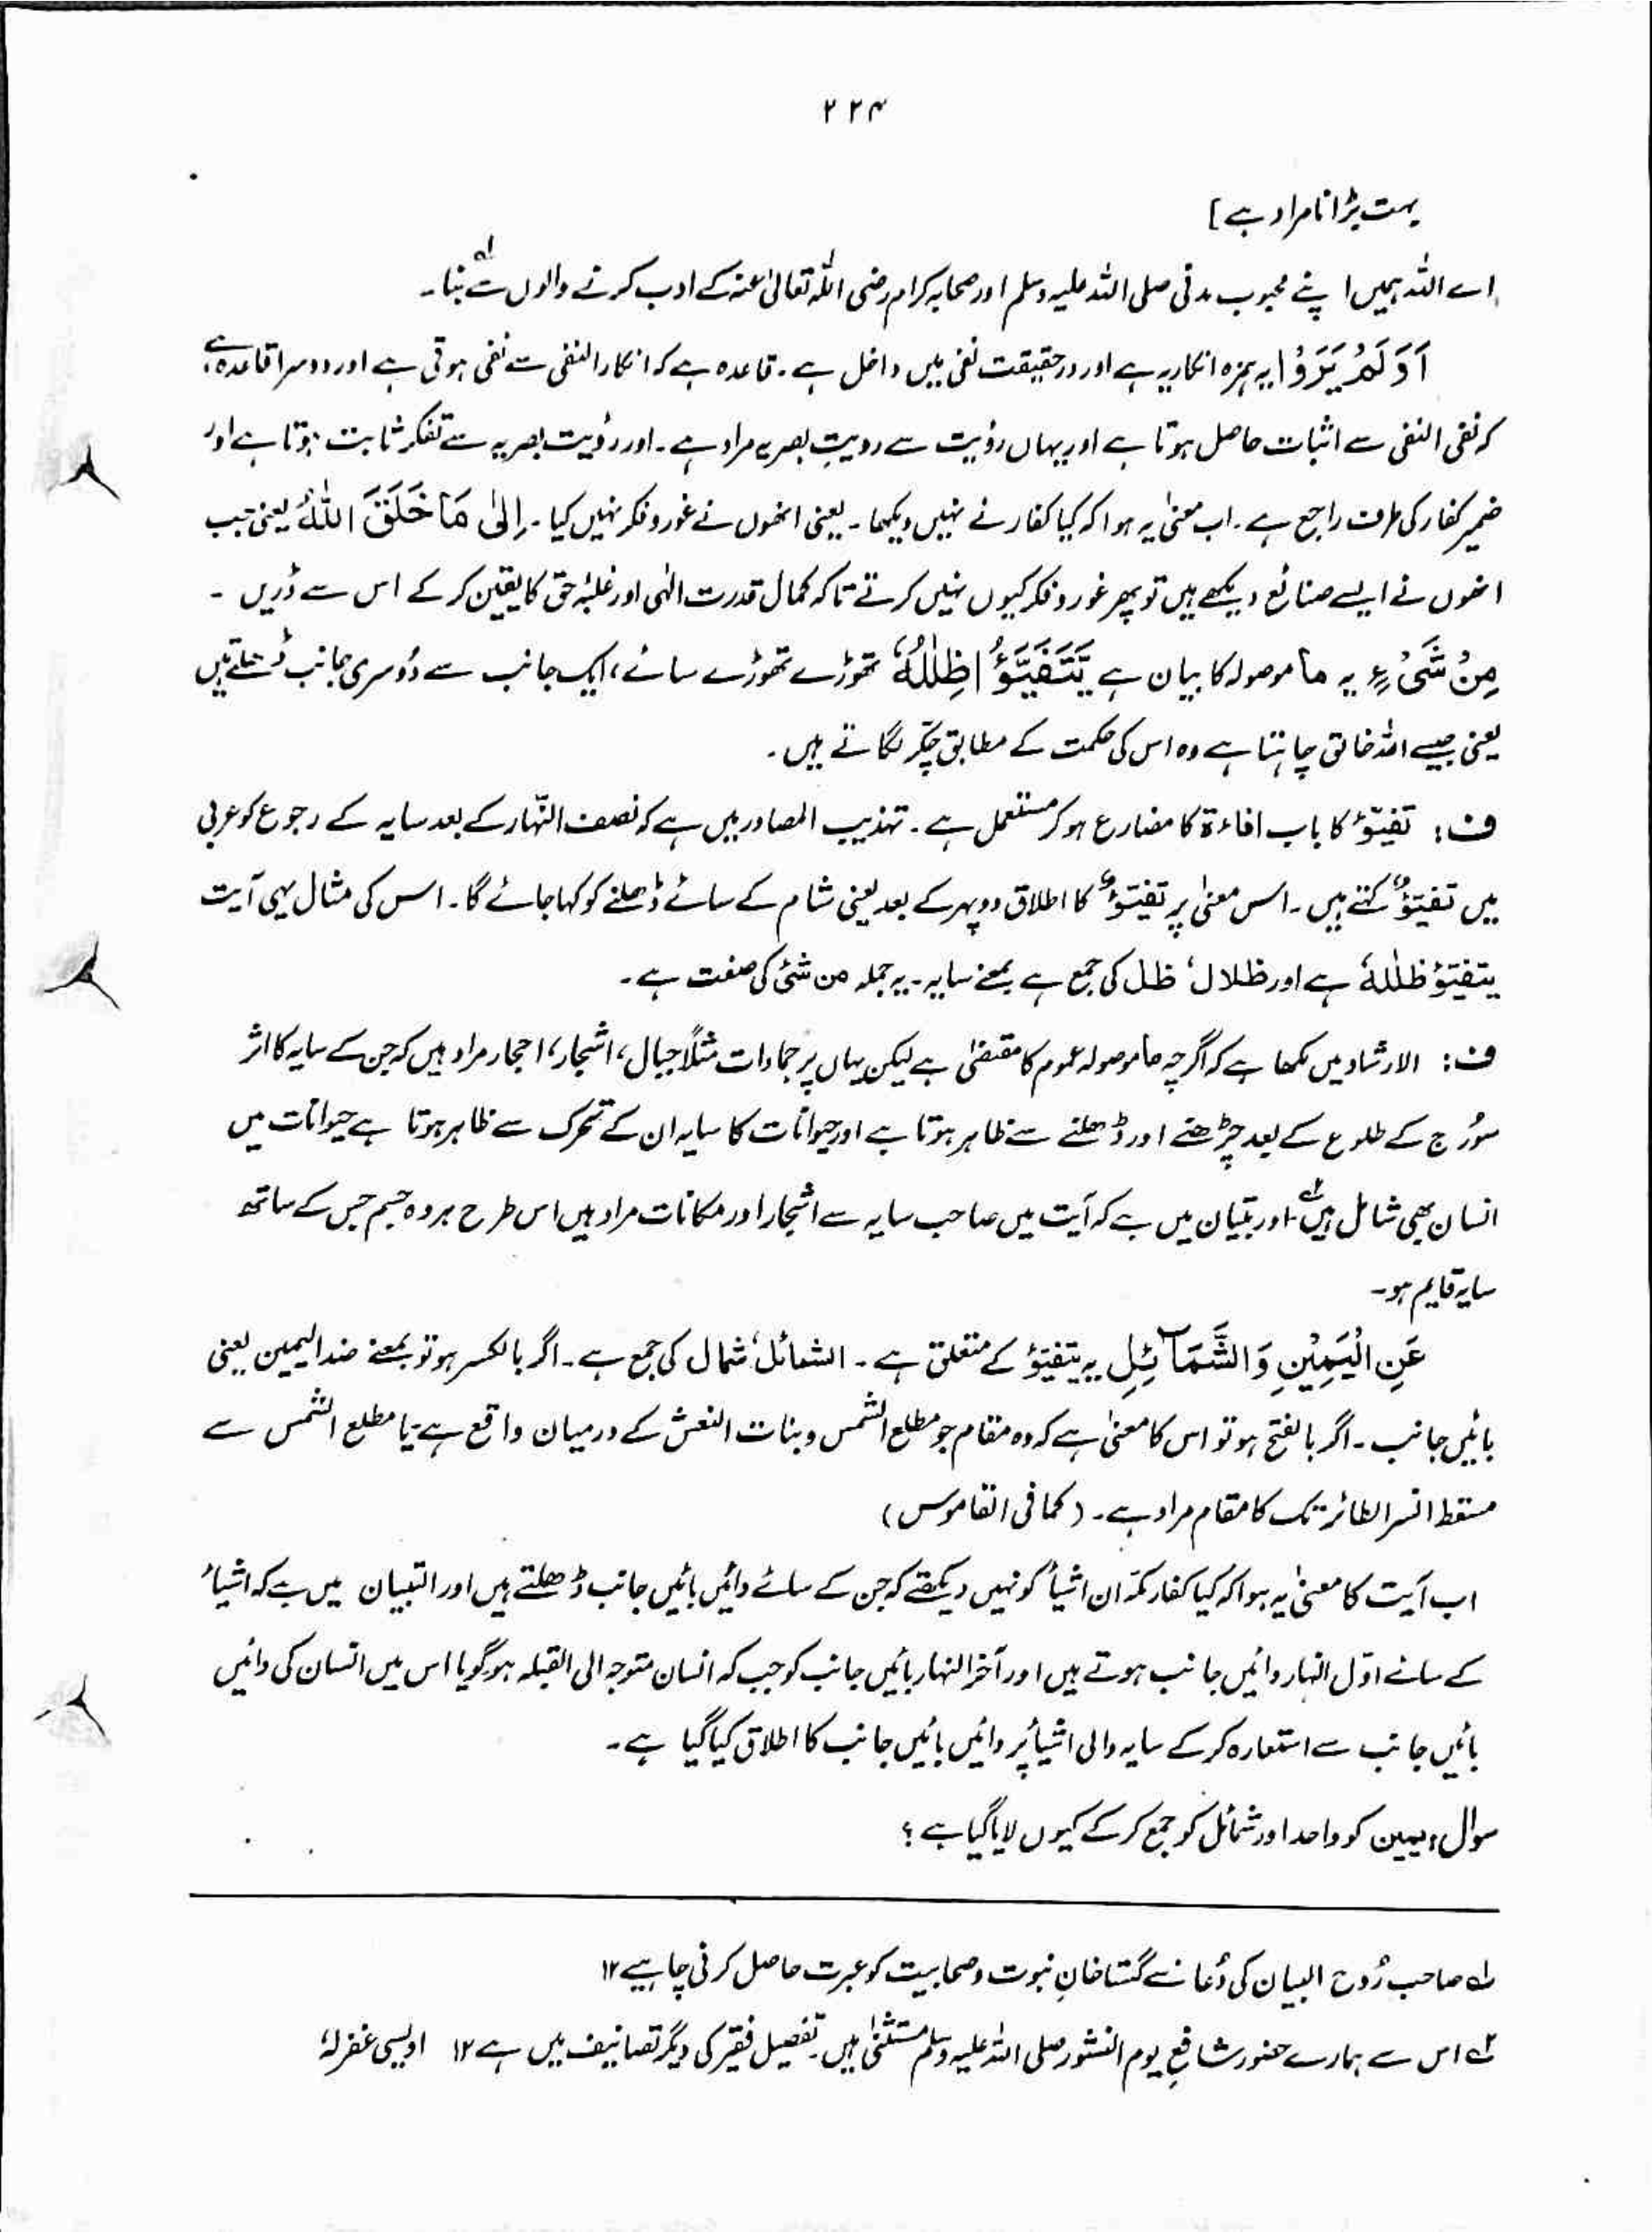 ۲۲۴
بہت بڑا نامراد ہے]
اے اللہ ہمیں اپنے محبوب مدنی صلی اللہ علیہ وسلم اور صحابہ کرام رضی اللہ تعالیٰ عنہ کے ادب کرنے والوں سے بنا۔ لہ
اَوَلَمْ یَرَوْا یہ ہمزہ انکاریہ ہے اور درحقیقت نفی میں داخل ہے۔ قاعدہ ہے کہ انکار النفی سے نفی ہوتی ہے اور دوسرا قاعدہ ہے
کہ نفی النفی سے اثبات حاصل ہوتا ہے اور یہاں رؤیت سے رویتِ بصریہ مراد ہے۔ اور رؤیت بصریہ سے تفکر ثابت ہوتا ہے اور
ضمیر کفار کی طرف راجع ہے۔ اب معنیٰ یہ ہوا کہ کیا کفار نے نہیں دیکھا۔ یعنی انھوں نے غور و فکر نہیں کیا۔ اِلیٰ مَا خَلَقَ اللّٰہُ یعنی جب
انھوں نے ایسے صنائع دیکھے ہیں تو پھر غور و فکر کیوں نہیں کرتے تاکہ کمال قدرت الٰہی اور غلبۂ حق کا یقین کر کے اس سے ڈریں ۔
مِنْ شَیْءٍ یہ ما موصولہ کا بیان ہے یَّتَفَیَّؤُا ظِلٰلُہٗ تھوڑے تھوڑے سائے، ایک جانب سے دُوسری جانب ڈھلتے ہیں
یعنی جیسے اللہ خالق چاہتا ہے وہ اس کی حکمت کے مطابق چکّر لگاتے ہیں۔
ف: تفیّؤ کا باب افاءۃ کا مضارع ہو کر مستعمل ہے۔ تہذیب المصادر میں ہے کہ نصف النّہار کے بعد سایہ کے رجوع کو عربی
میں تفیّؤ کہتے ہیں۔ اس معنیٰ پر تفیّؤ کا اطلاق دوپہر کے بعد یعنی شام کے سائے ڈھلنے کو کہا جائے گا۔ اس کی مثال یہی آیت
یتفیّؤ ظلٰلہٗ ہے اور ظلال، ظل کی جمع ہے بمعنے سایہ۔ یہ جملہ من شئی کی صفت ہے۔
ف: الارشاد میں لکھا ہے کہ اگرچہ ما موصولہ عموم کا مقتضیٰ ہے لیکن یہاں پر جمادات مثلاً جبال، اشجار، احجار مراد ہیں کہ جن کے سایہ کا اثر
سُورج کے طلوع کے بعد چڑھنے اور ڈھلنے سے ظاہر ہوتا ہے اور حیوانات کا سایہ ان کے تحرک سے ظاہر ہوتا ہے حیوانات میں
انسان بھی شامل ہیں ۲ اور تبیان میں ہے کہ آیت میں صاحب سایہ سے اشجار اور مکانات مراد ہیں اس طرح ہر وہ جسم جس کے ساتھ
سایہ قایم ہو۔
عَنِ الْیَمِیْنِ وَالشَّمَآئِلِ یہ یتفیّؤ کے متعلق ہے۔ الشمائل، شمال کی جمع ہے۔ اگر بالکسر ہو تو بمعنے ضد الیمین یعنی
بائیں جانب۔ اگر بالفتح ہو تو اس کا معنیٰ ہے کہ وہ مقام جو مطلع الشمس و بنات النعش کے درمیان واقع ہے یا مطلع الشمس سے
مسقط النسر الطائر تک کا مقام مراد ہے۔ (کما فی القاموس)
اب آیت کا معنیٰ یہ ہوا کہ کیا کفار مکّہ ان اشیأ کو نہیں دیکھتے کہ جن کے سائے دائیں بائیں جانب ڈھلتے ہیں اور التبیان میں ہے کہ اشیأ
کے سائے اوّل النہار دائیں جانب ہوتے ہیں اور آخر النہار بائیں جانب کو جب کہ انسان متوجہ الی القبلہ ہو گویا اس میں انسان کی دائیں
بائیں جانب سے استعارہ کر کے سایہ والی اشیأ پر دائیں بائیں جانب کا اطلاق کیا گیا ہے۔
سوال؛ یمین کو واحد اور شمائل کو جمع کر کے کیوں لایا گیا ہے؟
لہ صاحب رُوح البیان کی دُعا سے گستاخانِ نبوت و صحابیت کو عبرت حاصل کرنی چاہیے ۱۲
۲ اس سے ہمارے حضور شافعِ یوم النشور صلی اللہ علیہ وسلم مستثنیٰ ہیں۔ تفصیل فقیر کی دیگر تصانیف میں ہے ۱۲ اویسی غفرلہٗ